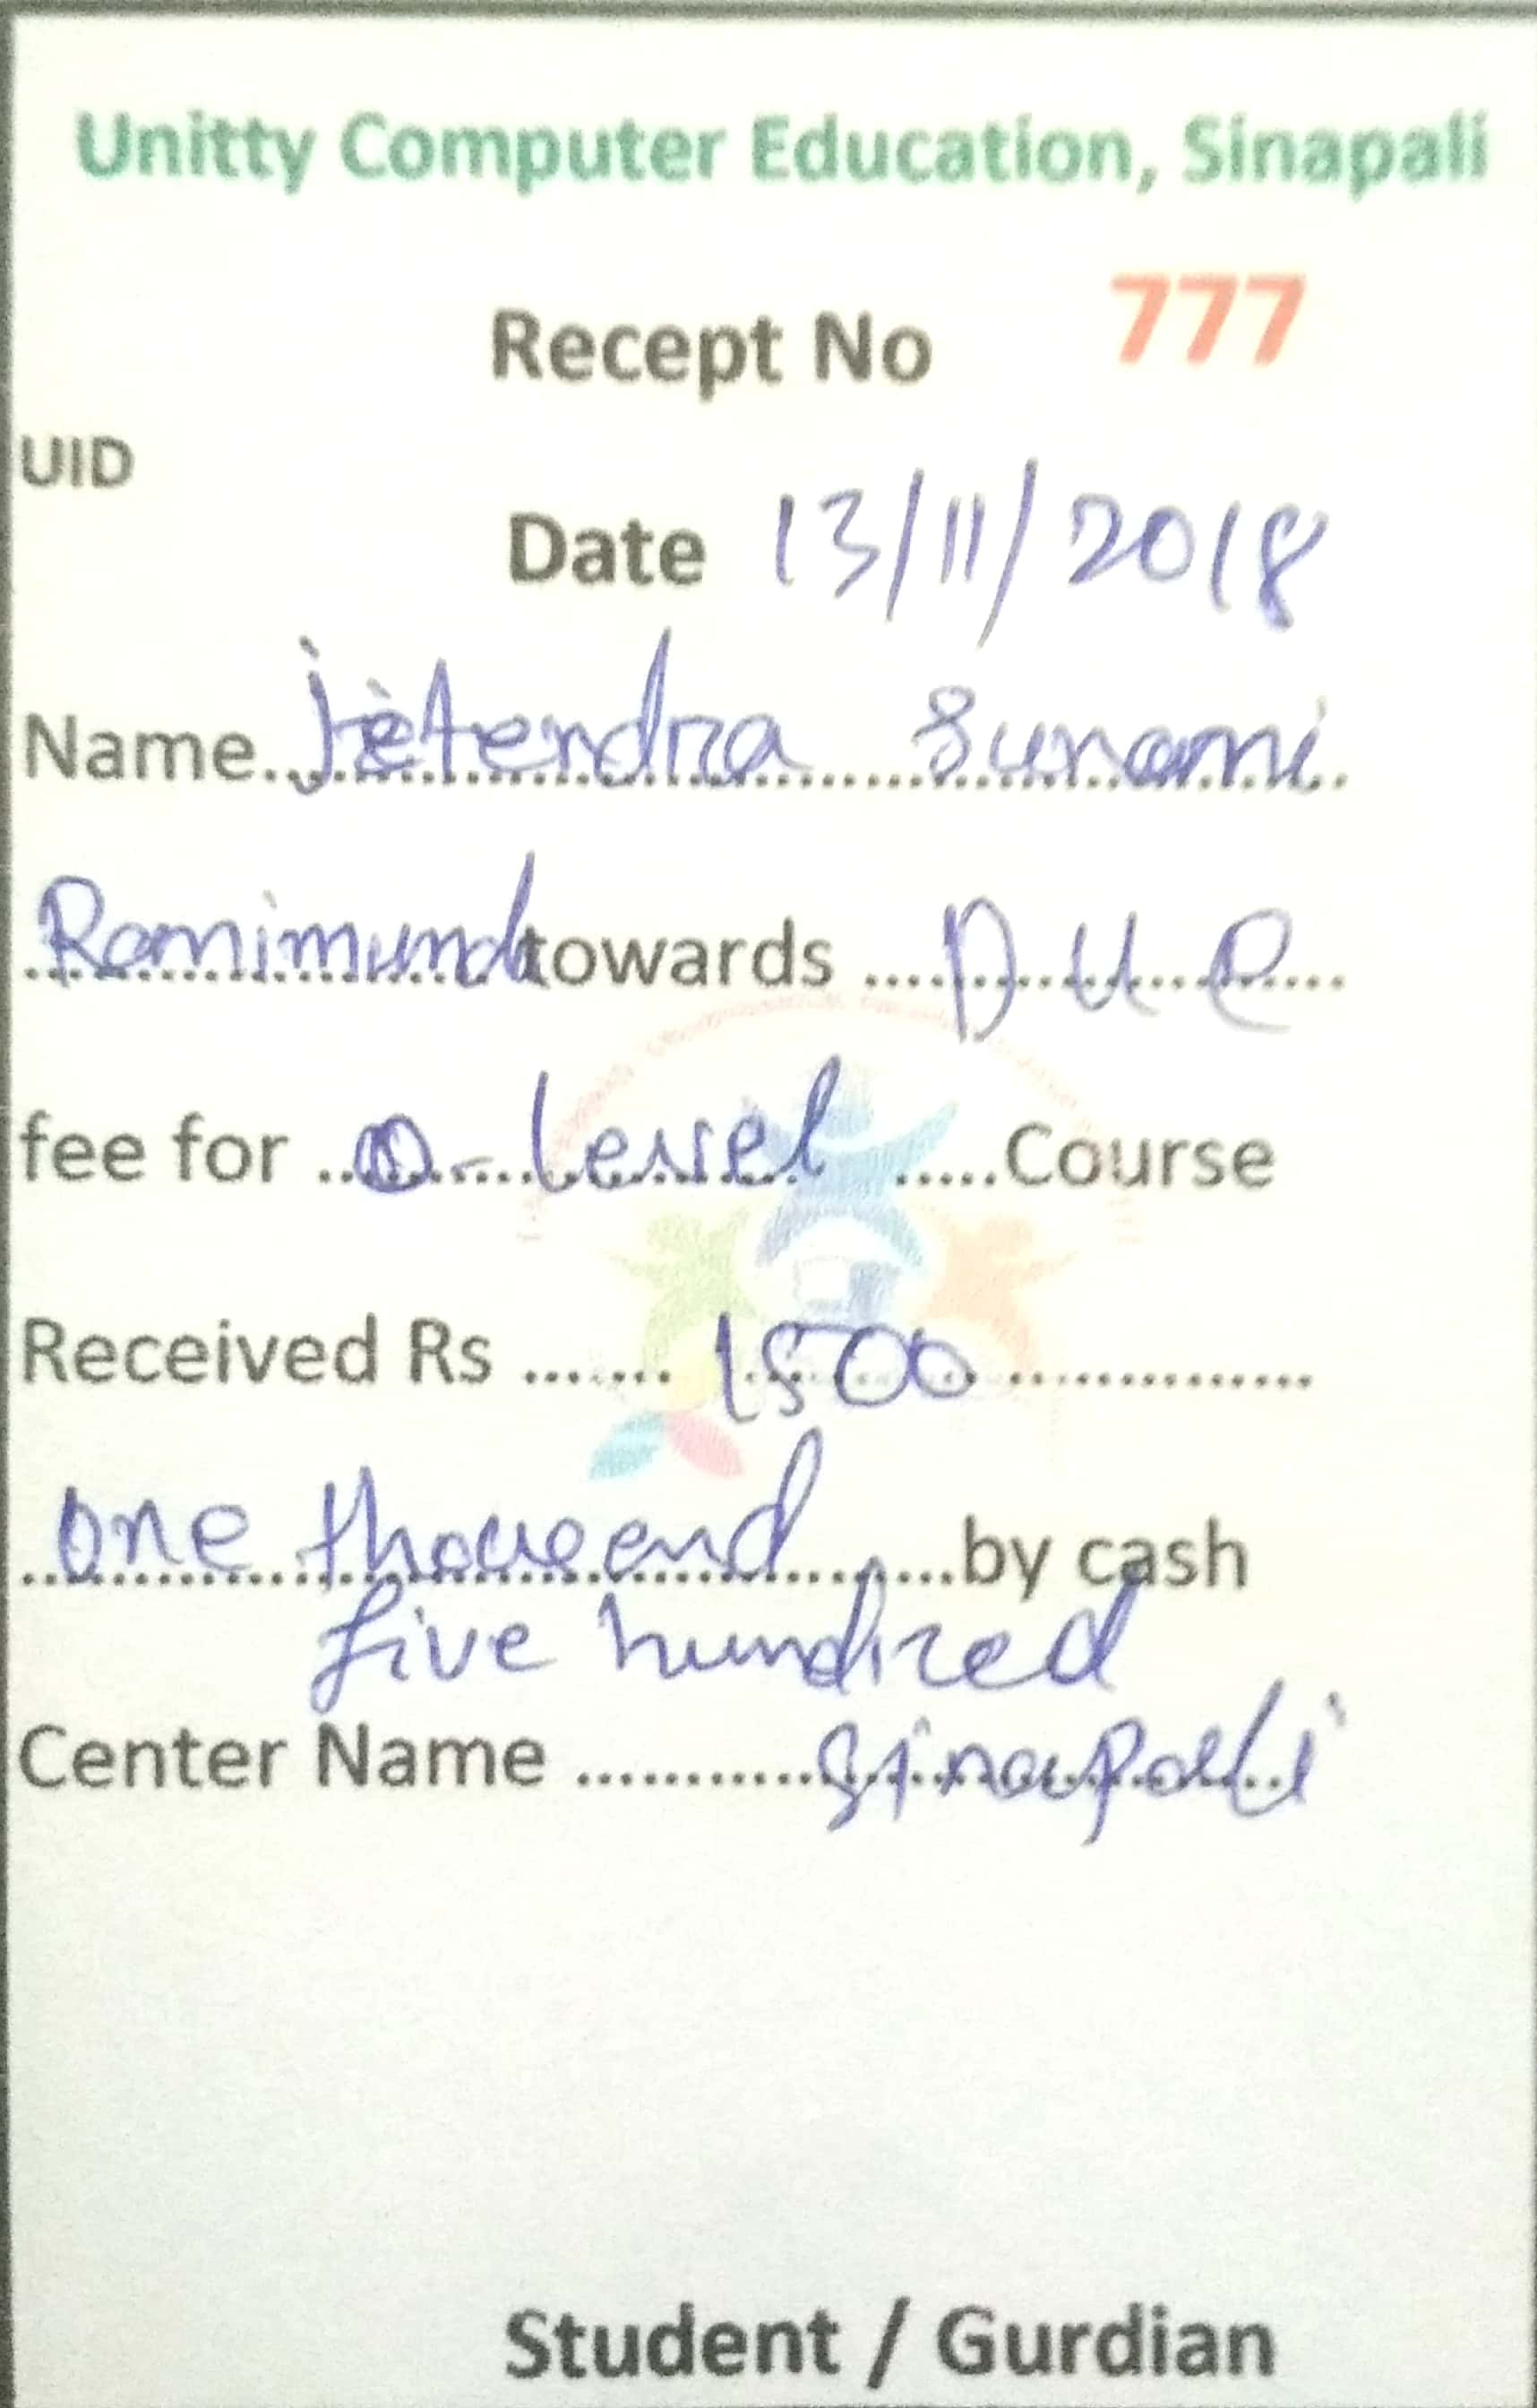 Unitty Computer Education, Sinapali
Recept No 777
UID
Date 13/11/2018
Name Jitendra Sunami
Ranimunda towards D U E
fee for O-Level Course
Received Rs 1500
one thousend by cash
five hundred
Center Name Sinapali
Student / Gurdian